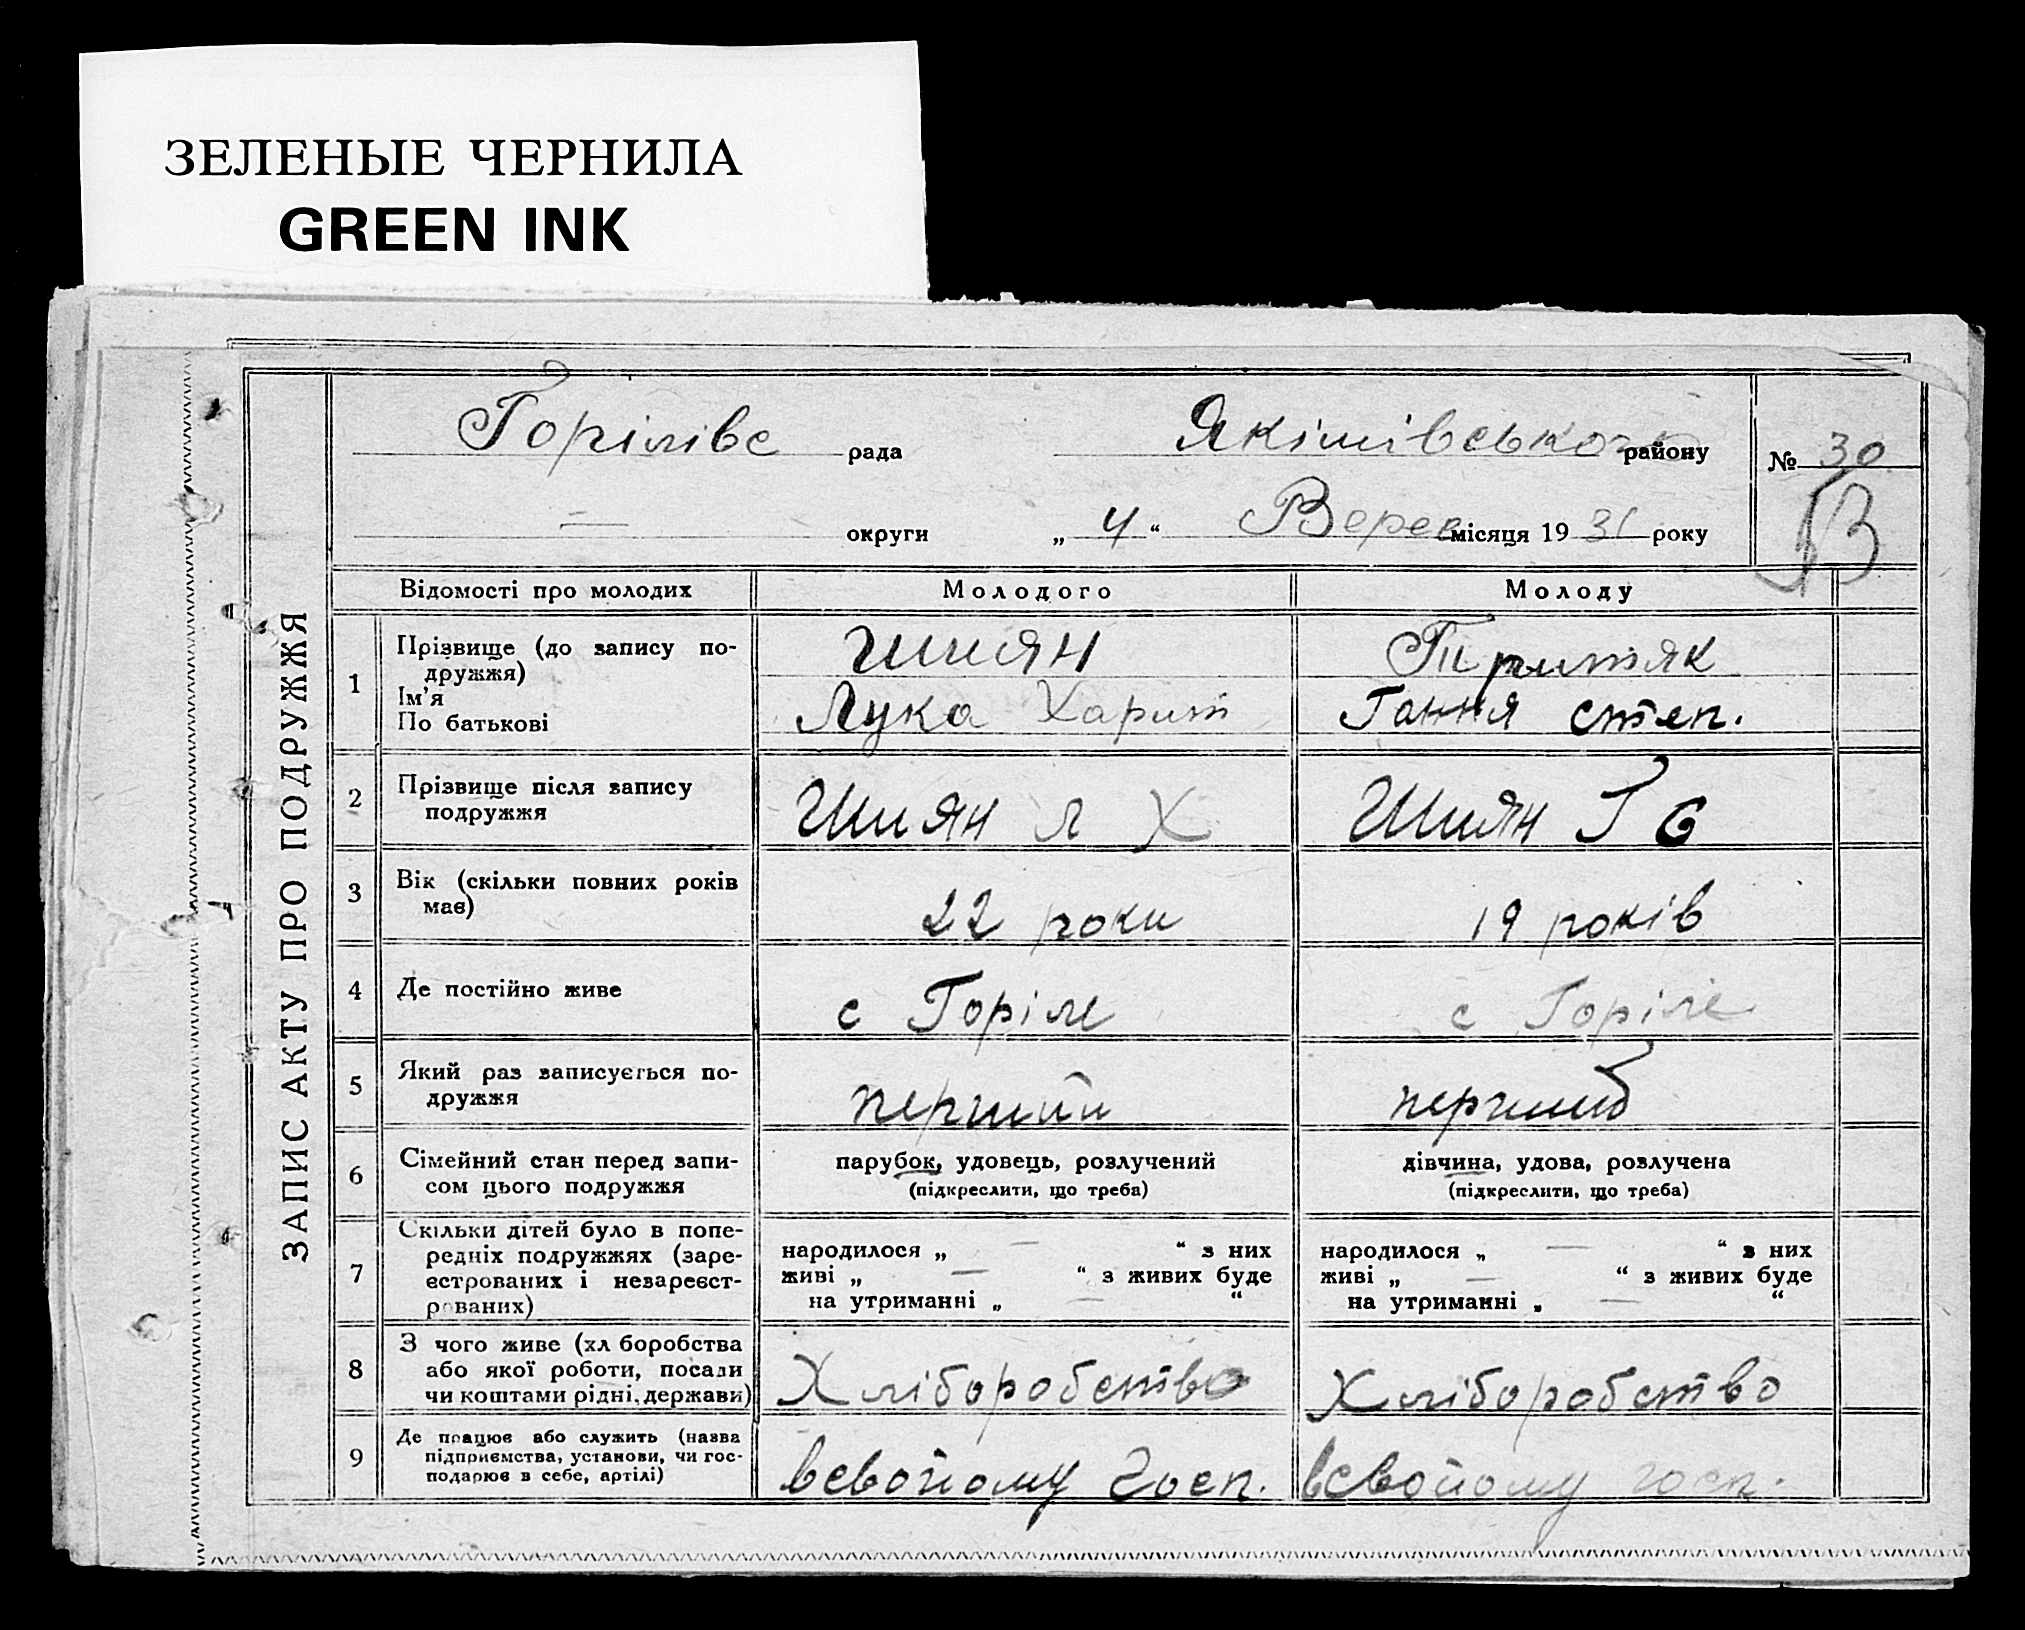 ЗЕЛЕНЫЕ ЧЕРНИЛА
GREEN INK
ЗАПИС АКТУ ПРО ПОДРУЖЖЯ
Горілівс рада Якімівського району № 30
— округи „ 4 “ Верес місяця 19 31 року
Відомості про молодих Молодого Молоду
1 Прізвище (до запису по-
дружжя)
Ім'я
По батькові
Шиян
Лука Харит
Притяк
Гання степ.
2 Прізвище після запису
подружжя
Шиян Л Х Шиян Г С
3 Вік (скільки повних років
має)
22 роки 19 років
4 Де постійно живе с Горіле с Горіле
5 Який раз записується по-
дружжя
перший перший
6 Сімейний стан перед запи-
сом цього подружжя
парубок, удовець, розлучений
(підкреслити, що треба)
дівчина, удова, розлучена
(підкреслити, що треба)
7 Скільки дітей було в попе-
редніх подружжях (заре-
єстрованих і незареєст-
рованих)
народилося „ — “ з них
живі „ — “ з живих буде
на утриманні „ — “
народилося „ — “ з них
живі „ — “ з живих буде
на утриманні „ — “
8 З чого живе (хл боробства
або якої роботи, посади
чи коштами рідні, держави)
Хліборобство Хліборобство
9 Де працює або служить (назва
підприємства, установи, чи гос-
подарює в себе, артілі)
всвойому госп. всвойому госп.